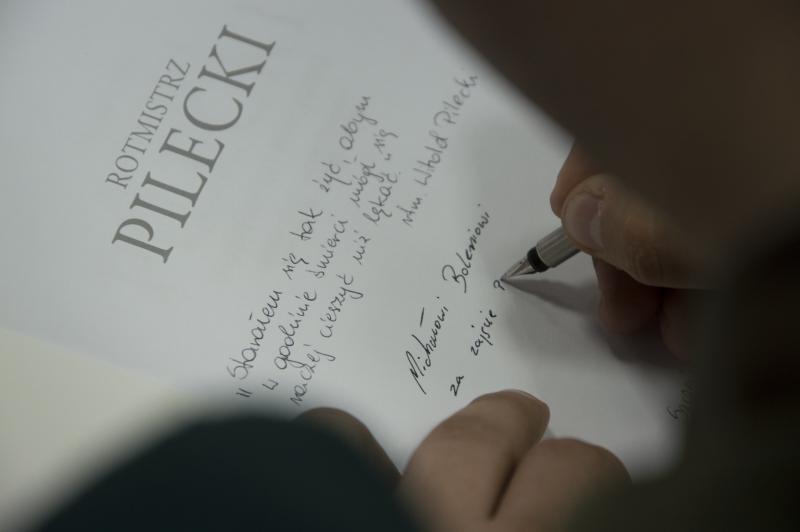 ROTMISTRZ
PILECKI
"Starałem się tak żyć, abym
w godzinie śmierci mógł się
raczej cieszyć niż lękać."
rtm. Witold Pilecki
Michałowi
za zajęcie